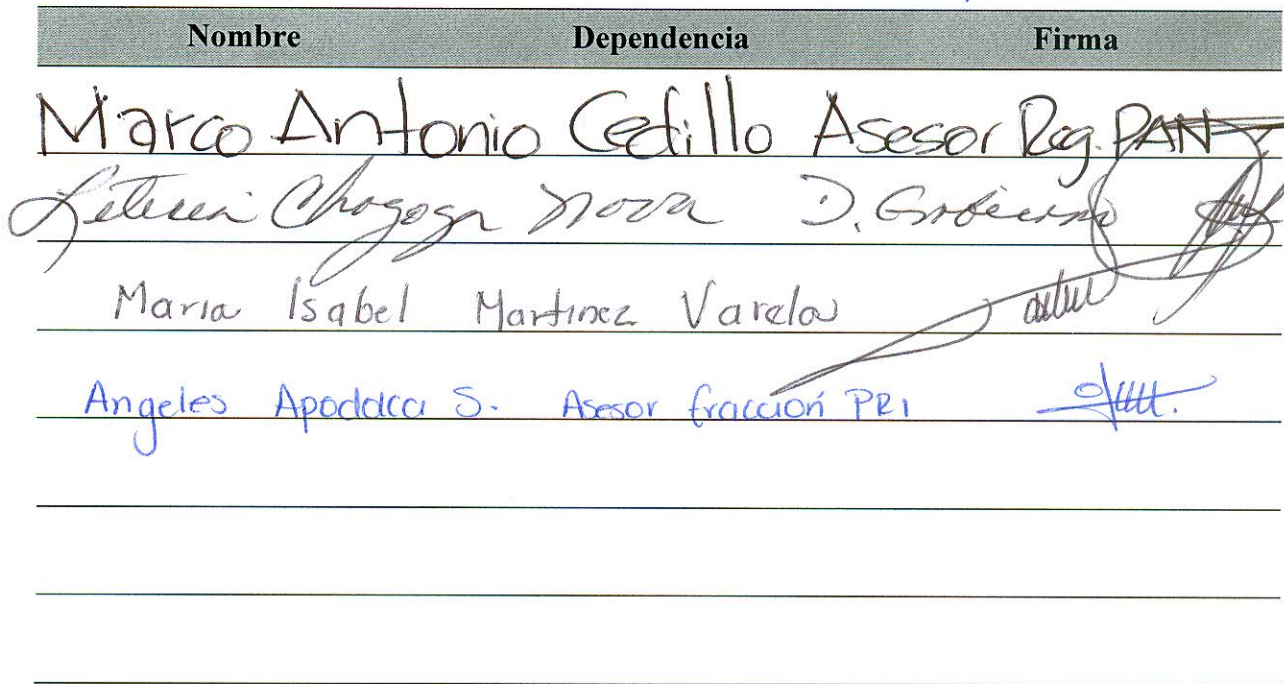 Nombre Dependencia Firma
Marco Antonio Cedillo Asesor Reg. PAN
Leticia Chagoya D. Gobierno
Maria Isabel Martinez Varela
Angeles Apodaca S. Asesor fracción PRI